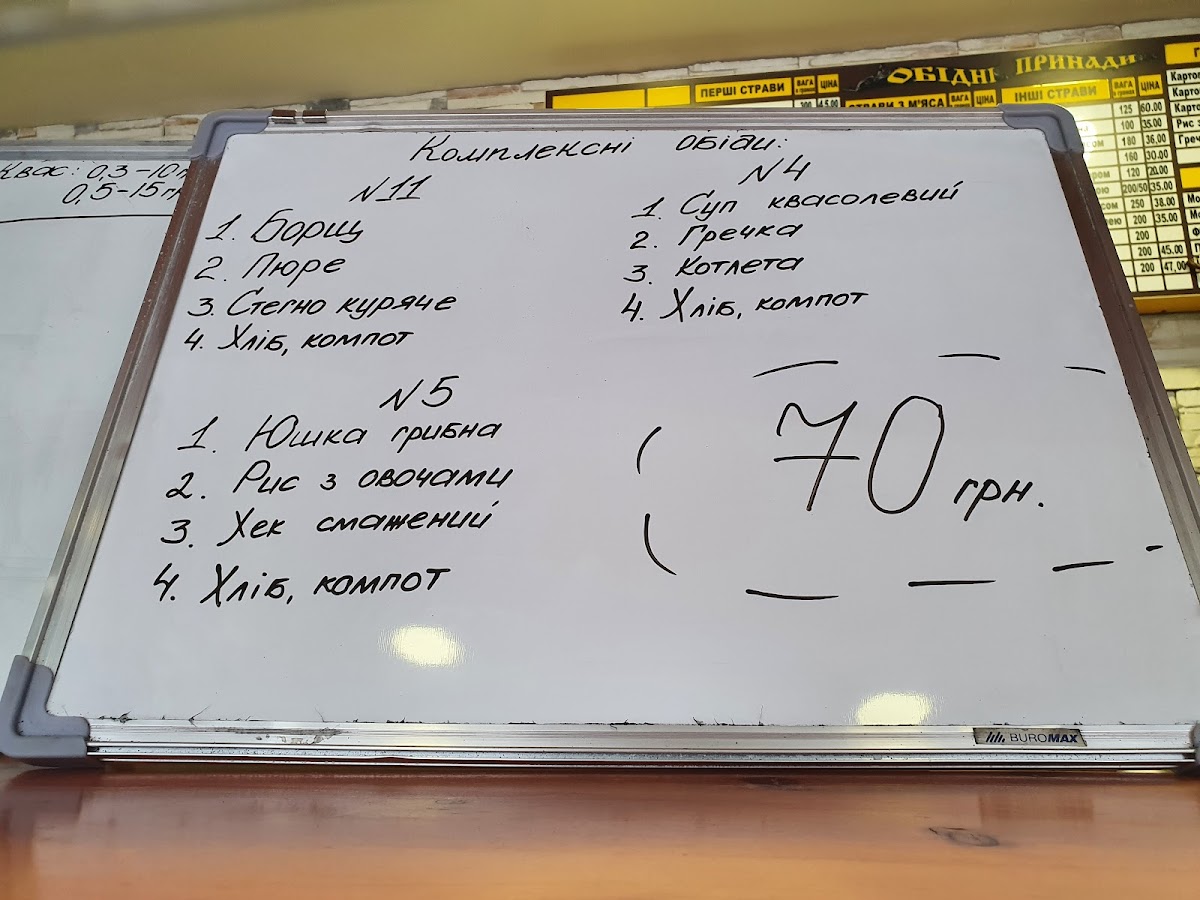 Комплексні обіди:
№11
1. Борщ
2. Пюре
3. Стегно куряче
4. Хліб, компот
№4
1. Суп квасолевий
2. Гречка
3. Котлета
4. Хліб, компот
№5
1. Юшка грибна
2. Рис з овочами
3. Хек смажений
4. Хліб, компот
70 грн.
BUROMAX
Квас: 0,3 - 10
0,5 - 15 г
ОБІДНІ ПРИНАДИ
ПЕРШІ СТРАВИ ВАГА ЦІНА
300 45.00
СТРАВИ З М'ЯСА ВАГА ЦІНА
ІНШІ СТРАВИ ВАГА ЦІНА
125 60.00
100 35.00
180 36.00
160 30.00
120 20.00
200/50 35.00
250 38.00
200 35.00
200
200 45.00
200 47.00
Картоп
Картоп
Карто
Рис з
Греч